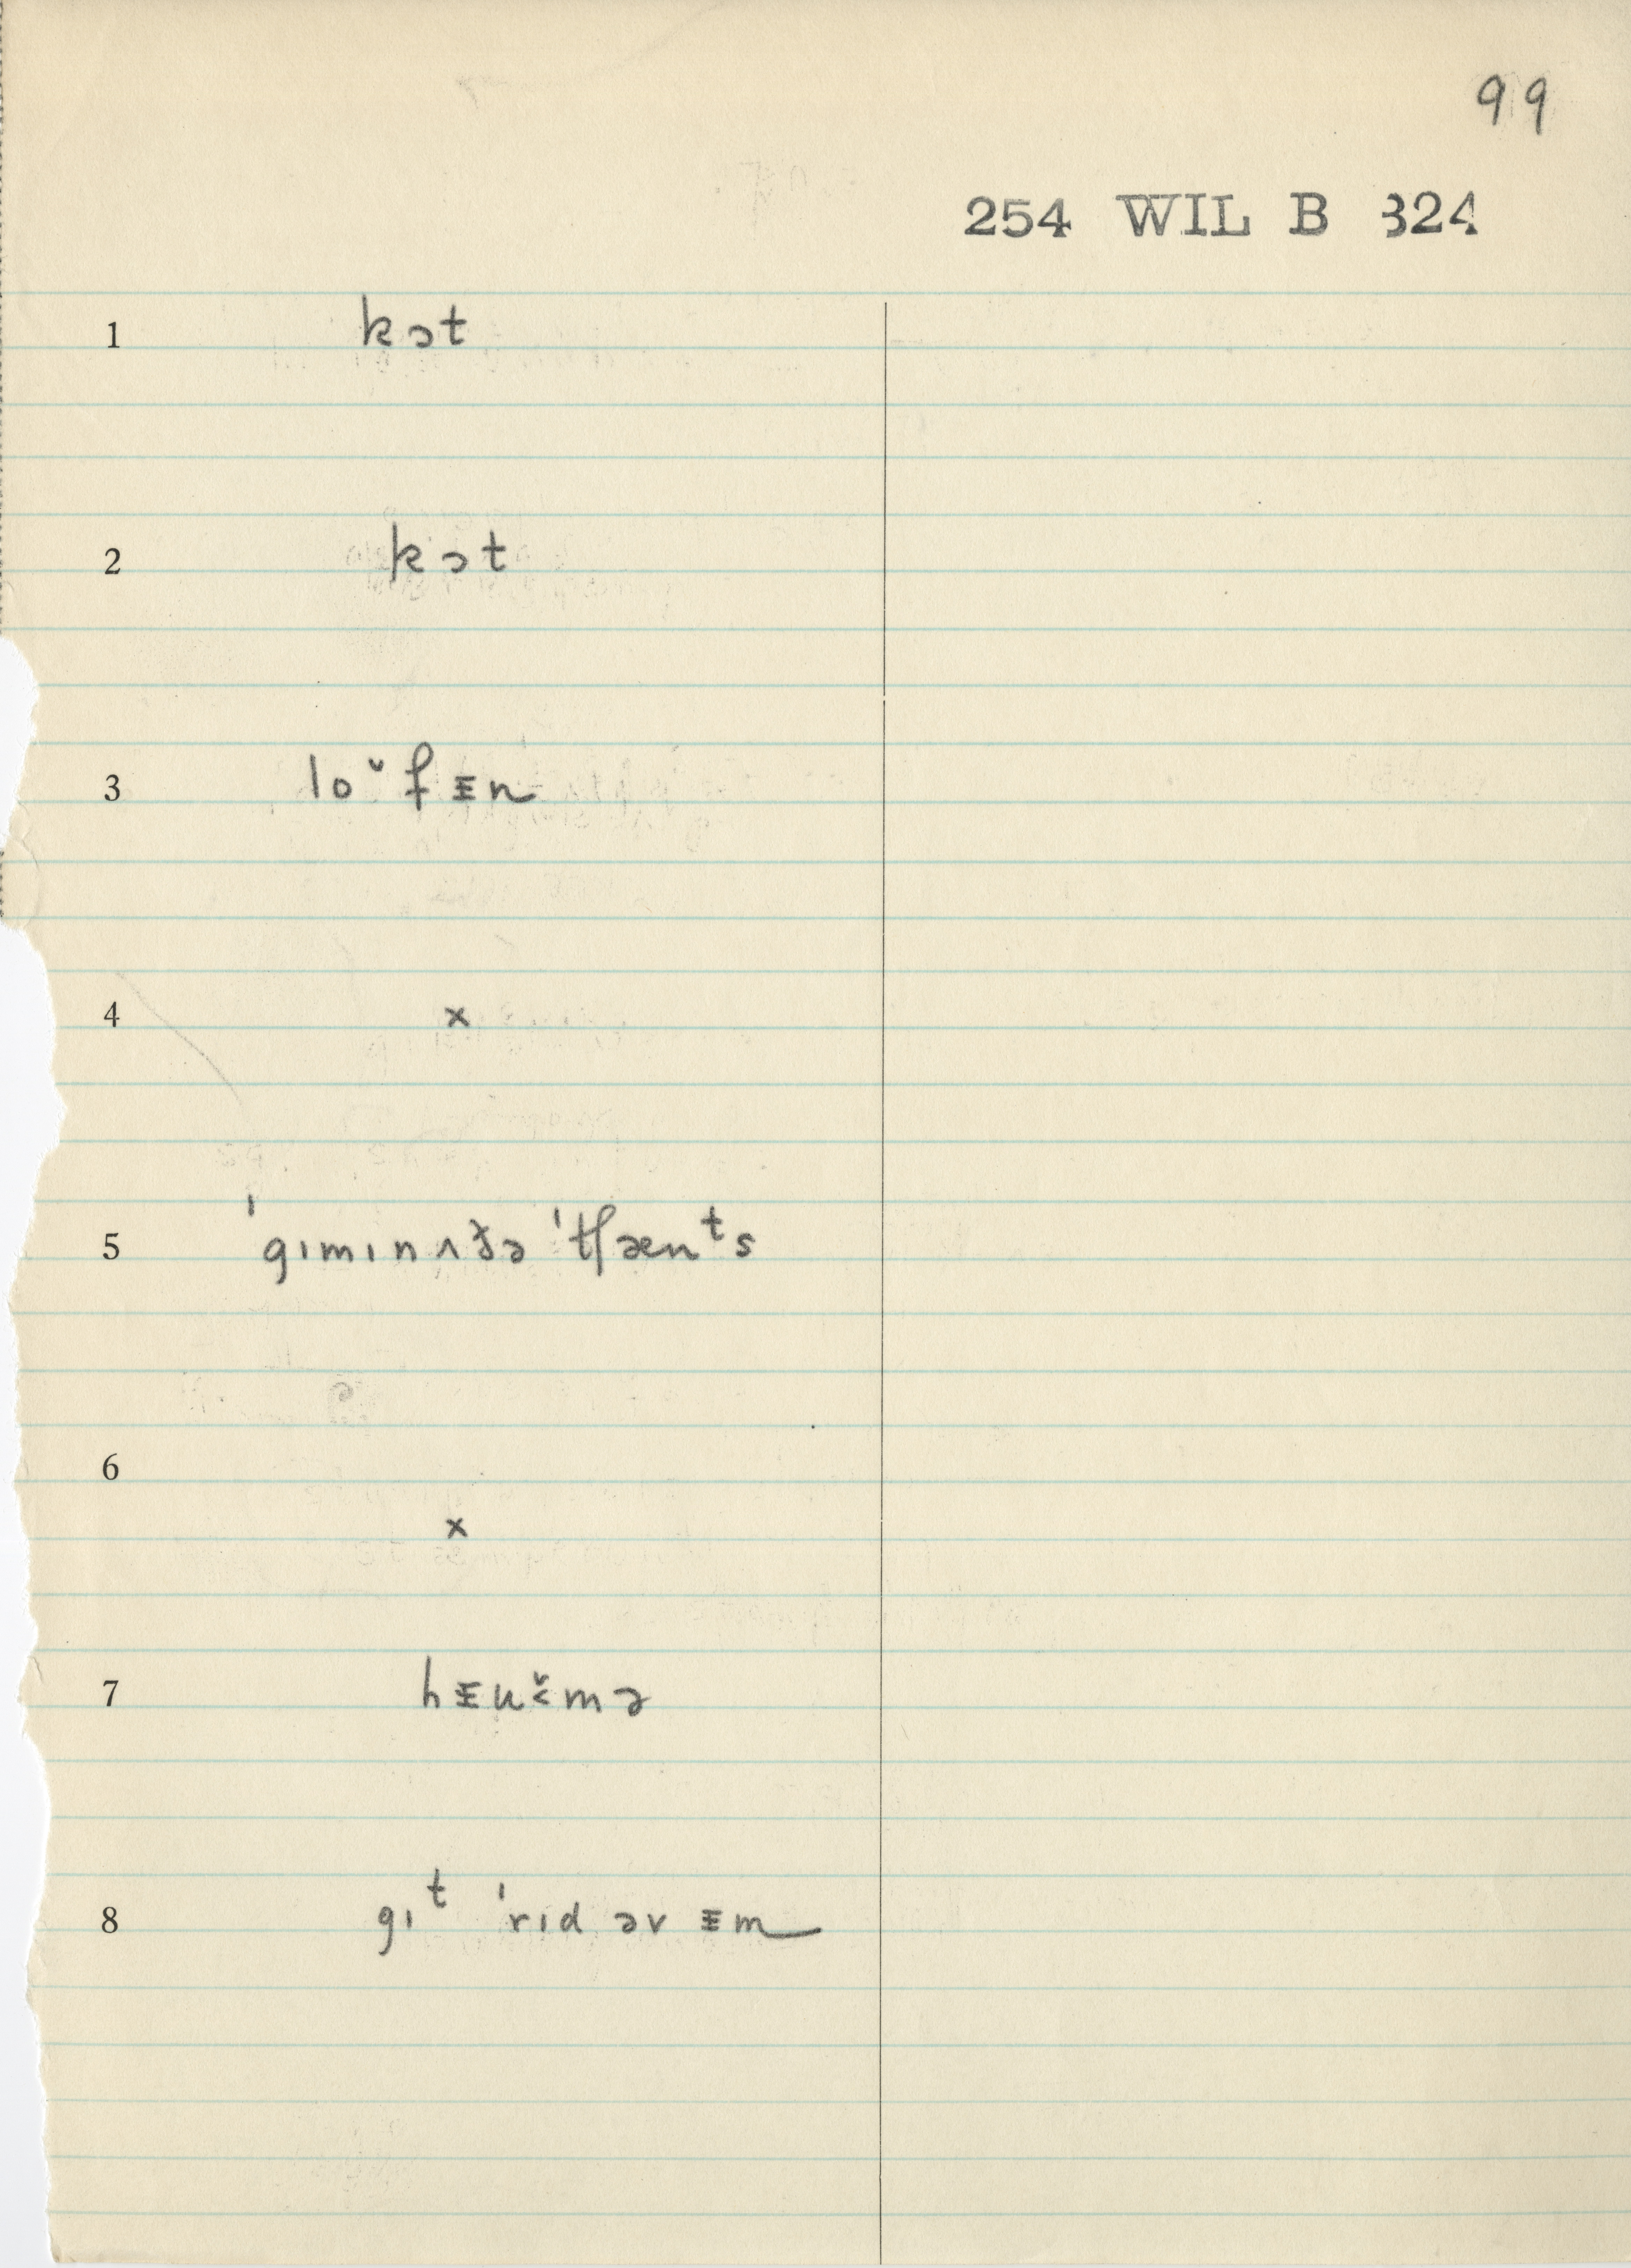 99
254 WIL B 324
1 kɔt
2 kɔt
3 lo˅fᵻn
4 x
5 ˈgɪmɪnʌðə ˈtʃænᵗs
6
x
7
8 gɪᵗ ˈrɪd əv ᵻm